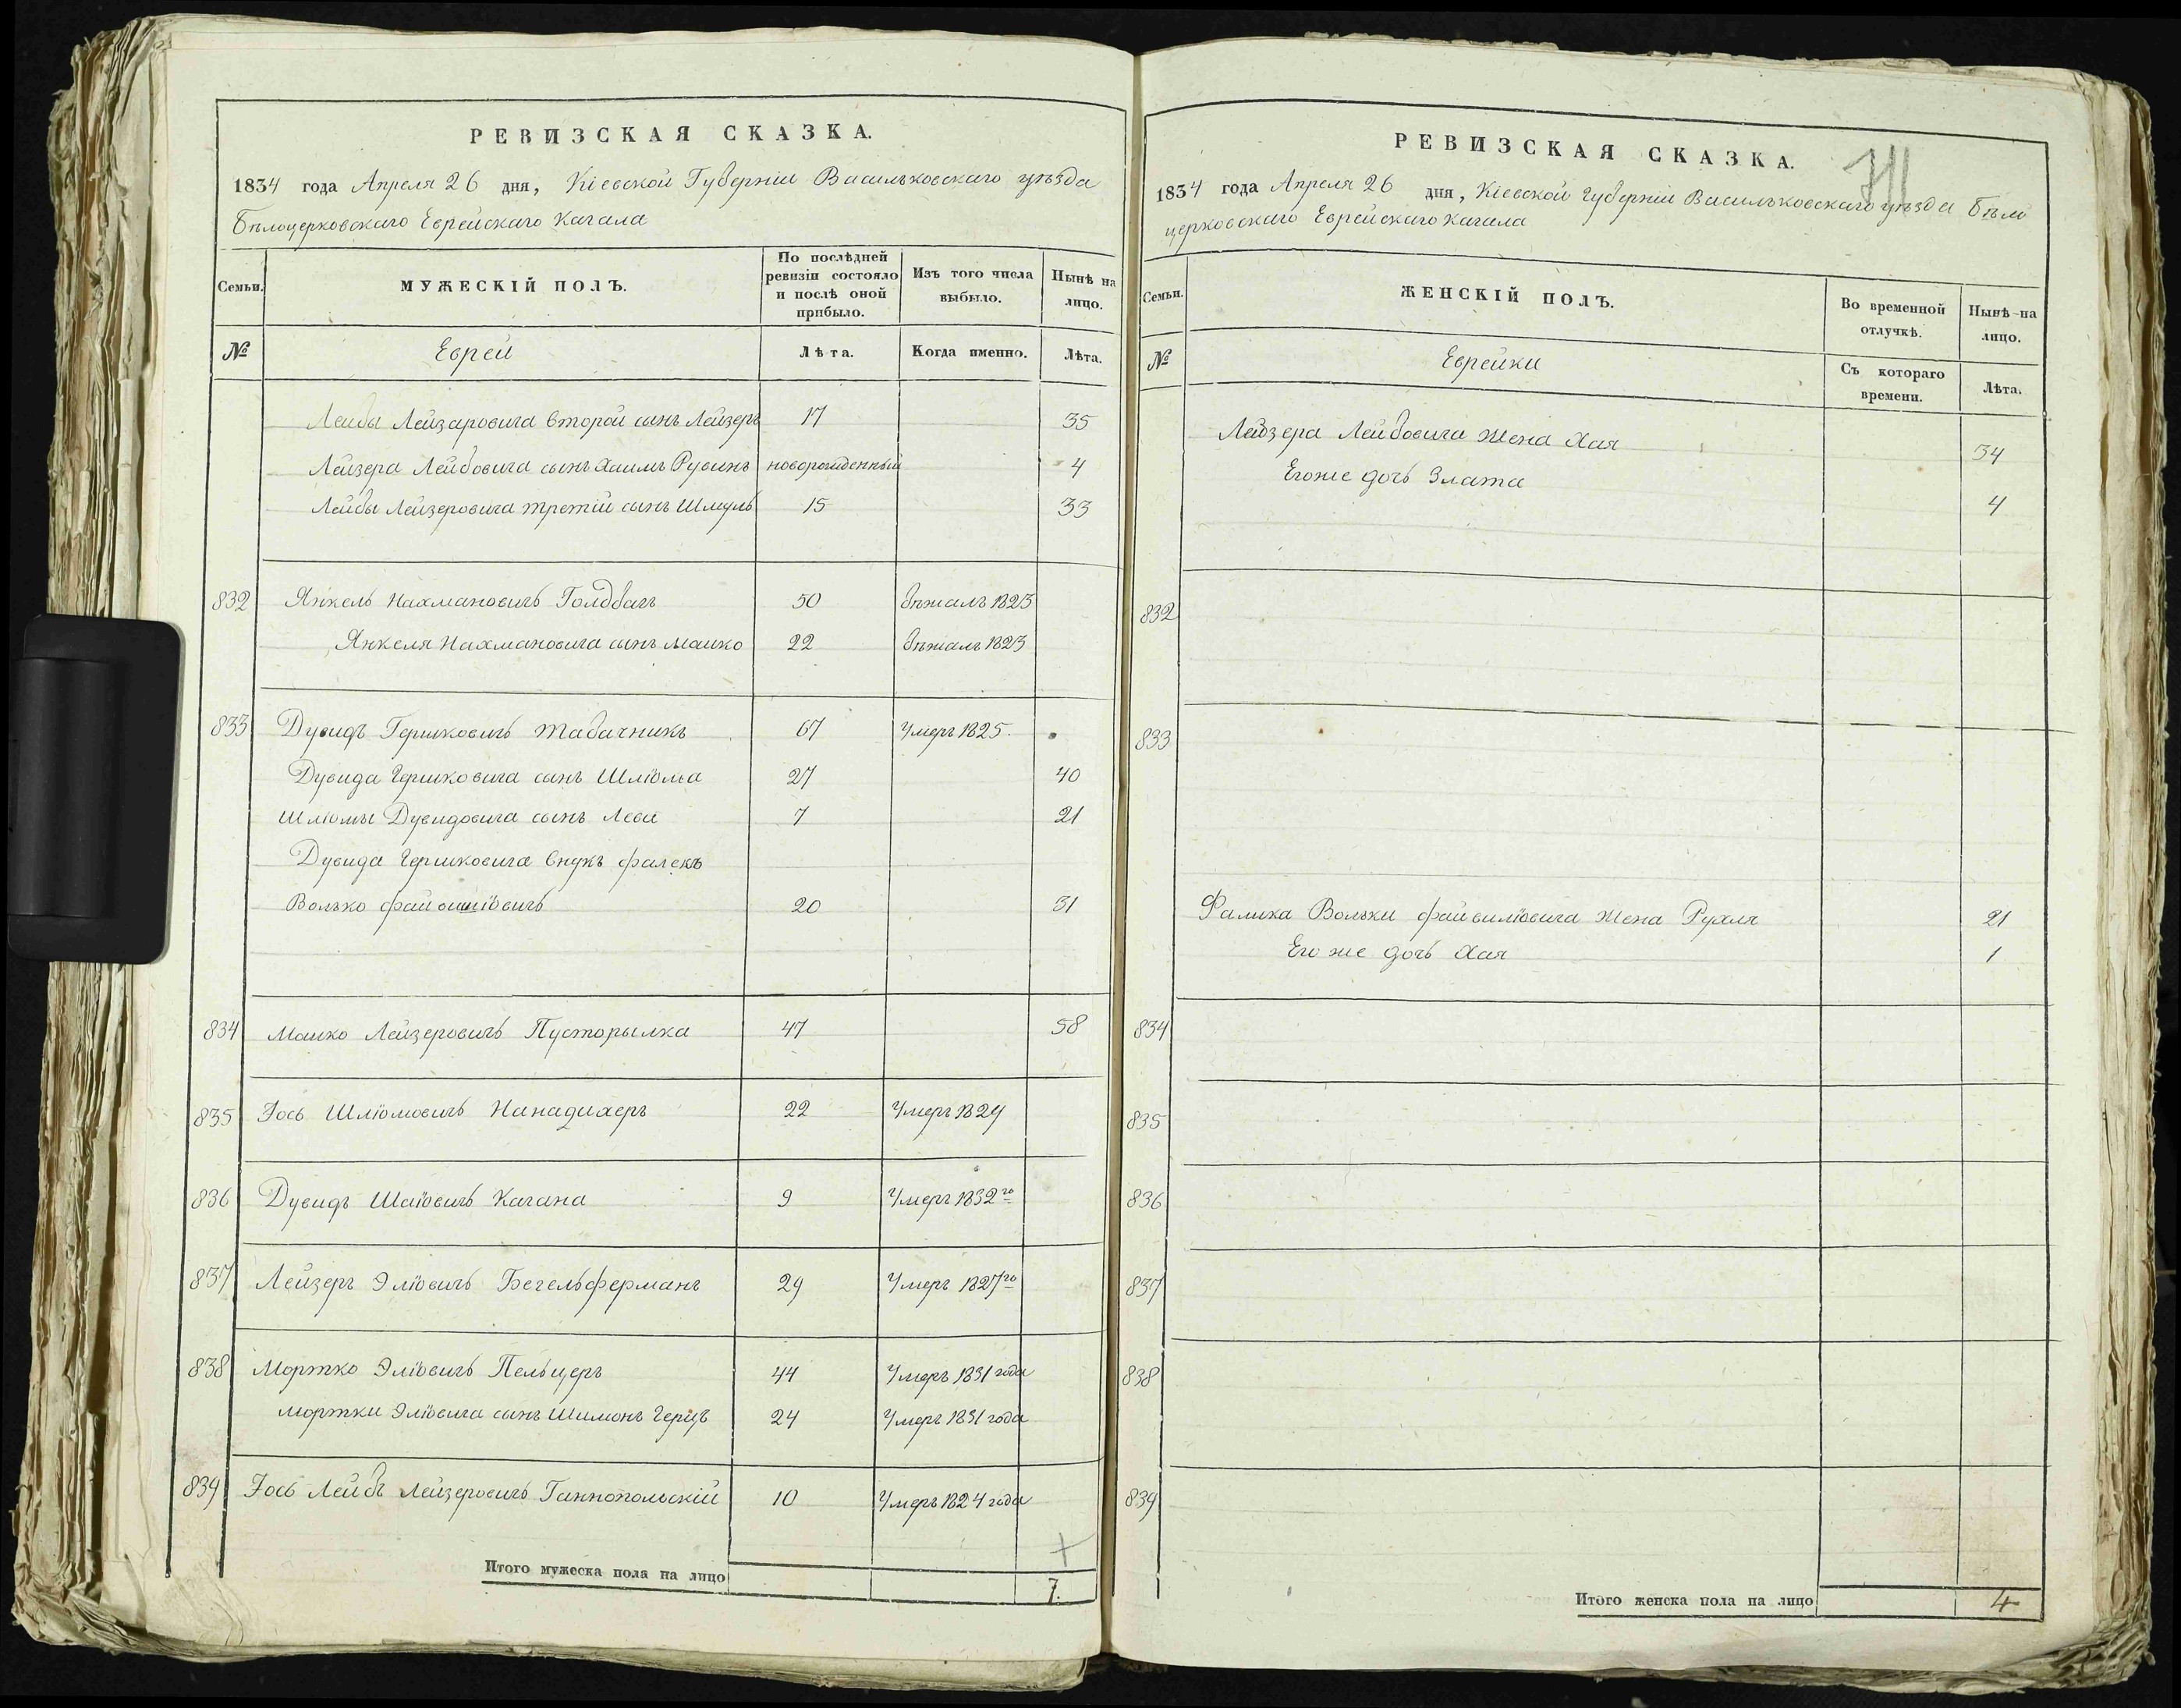 РЕВИЗСКАЯ СКАЗКА.
1834 года Апреля 26 дня, Кіевской Губерніи Васильковскаго уѣзда
Бѣлоцерковскаго Еврейскаго Кагала
Семьи. МУЖЕСКІЙ ПОЛЪ. По послѣдней ревизіи состояло и послѣ оной прибыло. Изъ того числа выбыло. Нынѣ на лицо.
№ Евреи Лѣта. Когда именно. Лѣта.
Лейбы Лейзаровича второй сынъ Лейзеръ 17 35
Лейзера Лейбовича сынъ Хаимъ Рувинъ новорожденный 4
Лейбы Лейзеровича третій сынъ Шмуль 15 33
832 Янкель Нахмановичъ Голдбагъ 50 бѣжалъ 1823
Янкеля Нахмановича сынъ Мошко 22 бѣжалъ 1823
833 Дувидъ Гершковичъ Табачникъ 67 Умеръ 1825.
Дувида Гершковича сынъ Шліома 27 40
Шліомы Дувидовича сынъ Леви 7 21
Дувида Гершковича внукъ Фалекъ
Волько 20 31
834 Мошко Лейзеровичъ Пусторылка 47 58
835 Іось Шліомовичъ 22 Умеръ 1829
836 Дувидъ Шаіовичъ Кагана 9 Умеръ 1832го
837 Лейзеръ Эліовичъ Бегельферманъ 29 Умеръ 1827го
838 Мортко Эліовичъ Пельцеръ 44 Умеръ 1831 года
Мортки Эліовича сынъ Шимонъ Герцъ 24 Умеръ 1831 года
839 Іось Лейбъ Лейзеровичъ Ганнопольскій 10 Умеръ 1824 года
Итого мужеска пола на лицо 7.
РЕВИЗСКАЯ СКАЗКА.
1834 года Апреля 26 дня, Кіевской Губерніи Васильковскаго уѣзда Бѣло
церковскаго Еврейскаго Кагала
Семьи. ЖЕНСКІЙ ПОЛЪ. Во временной отлучкѣ. Нынѣ на лицо.
№ Еврейки Съ котораго времени. Лѣта.
Лейзера Лейбовича жена Хая 34
Его же дочь Злата 4
832
833
Фалика Вольки Файвиліовича жена Рухля 21
Его же дочь Хая 1
834
835
836
837
838
839
Итого женска пола на лицо 4